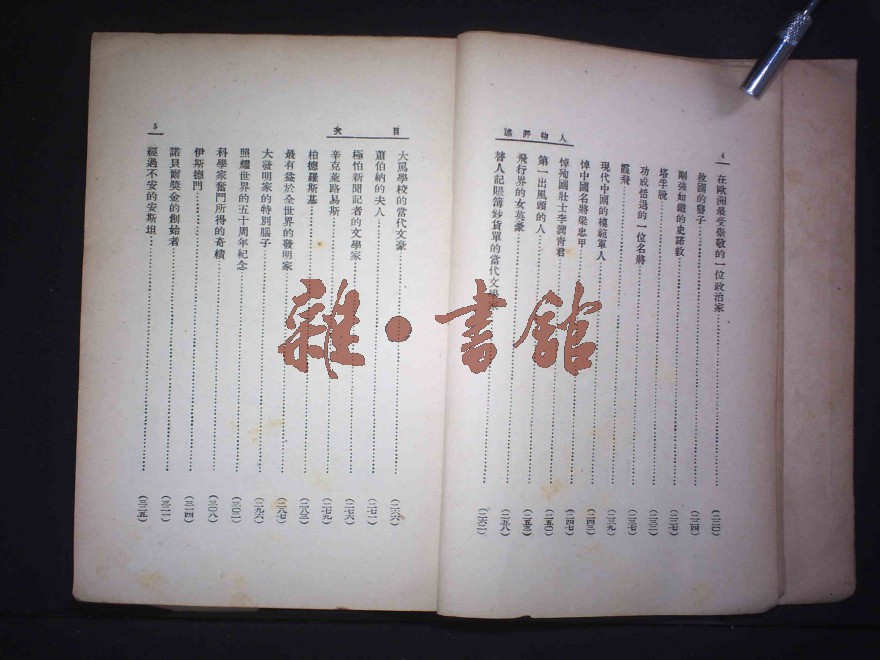 4
人物評述
在歐洲最受崇敬的一位政治家……(二二〇)
救國的醫子……(二二四)
剛強如鐵的史諾敦……(二二七)
塔虎脫……(二三二)
功成悟退的一位名將……(二三七)
霞飛……(二三九)
現代中國的模範軍人……(二四三)
悼中國名將梁忠甲……(二四七)
悼殉國壯士李潤青君……(二五〇)
第一出風頭的人……(二五三)
飛行界的女英豪……(二五八)
替人記賬簿鈔貨單的當代文學家……(二六二)
目次
5
大罵學校的當代文豪……(二六六)
蕭伯納的夫人……(二七一)
極怕新聞記者的文學家……(二七六)
辛克萊路易斯……(二七九)
柏德羅斯基……(二八三)
最有益於全世界的發明家……(二八七)
大發明家的特別腦子……(二九六)
照耀世界的五十周年紀念……(三〇二)
科學家奮鬥所得的奇績……(三〇八)
伊斯德門……(三一四)
諾貝爾獎金的創始者……(三二一)
經過不安的安斯坦……(三二五)
雜·書館